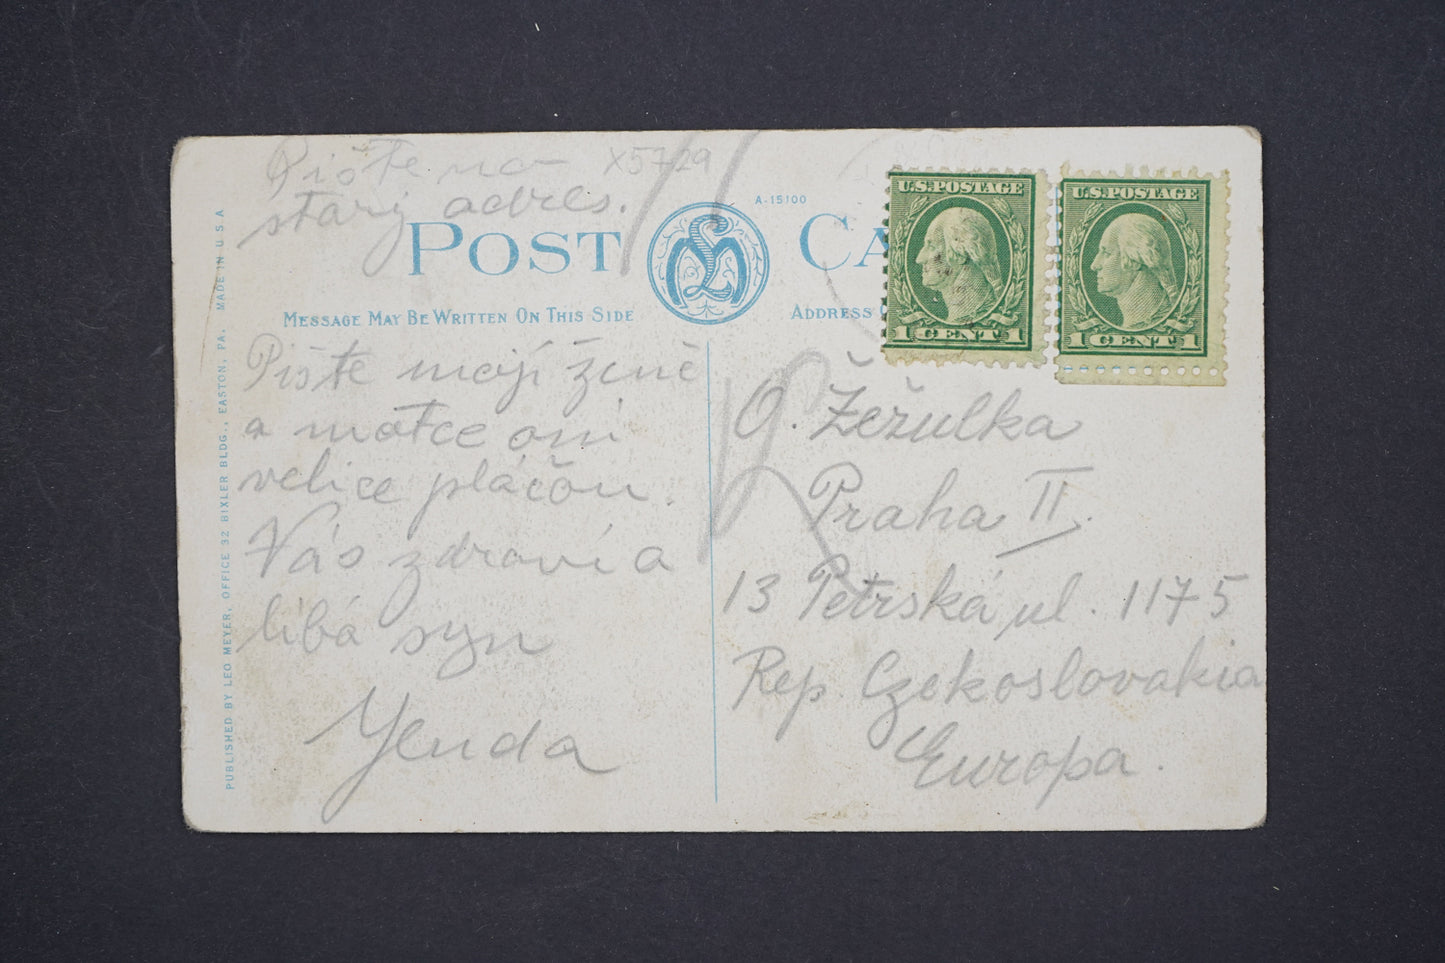 Pište na X5729
starý adres.
A-15100
POST CA
MESSAGE MAY BE WRITTEN ON THIS SIDE
ADDRESS
U.S. POSTAGE
1 CENT 1
U.S. POSTAGE
1 CENT 1
Pište mojí ženě
a matce oni
velice pláčou.
Vás zdraví a
líbá syn
Yenda
O. Žežulka
Praha II.
13 Petrská ul. 1175
Rep. Czekoslovakia
Europa.
PUBLISHED BY LEO MEYER, OFFICE 32 BIXLER BLDG., EASTON, PA. MADE IN U S A